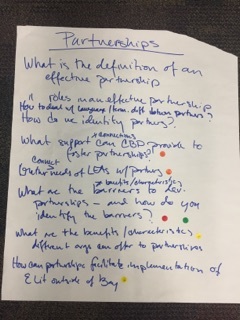 Partnerships
What is the definition of an
effective partnership
" roles in an effective partnership
How to deal w/ language/term. diff between partners?
How do we identify partners?
connections
What support can CBD provide to
foster partnerships?
connect
Greater needs of LEAs w/ partners
benefits/characteristics
What are the barriers to dev.
partnerships – and how do you
identify the barriers?
What are the benefits/characteristics
different orgs can offer to partnerships
How can partnerships facilitate implementation of
E Lit outside of Bay